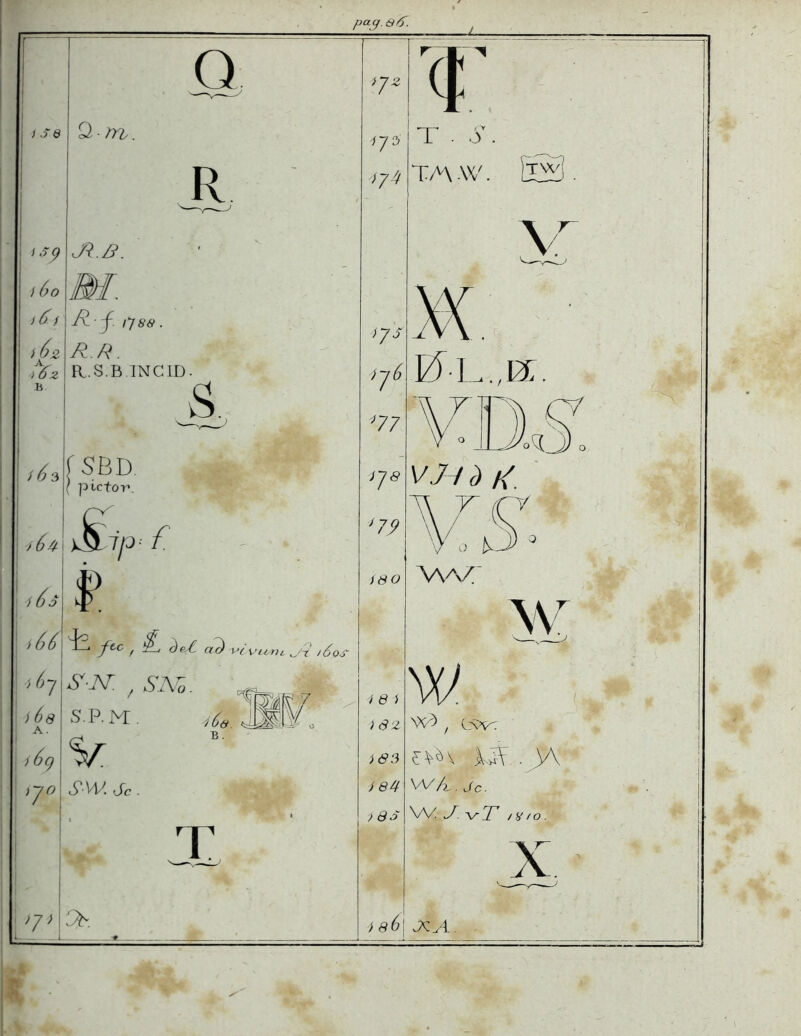 pag. 86.
Q
158 Q. m.
R
159 R.B.
160
161 R. f. 1788.
162 R.R.
162 R.S.B.INCID.
A
B
S
163 { SBD.
pictor.
164 Sip: f.
165
166 fec, del ad vivum 1605
167 S.N. , SNo.
168 S.P.M. 168.
A. B.
169
170 S.W. Sc.
T
171
172
173 T . S.
174 T.M.W. TW .
V
175
176
177 V.D.S.
178
179 V.S.
180
W
181 W.
182
183
184 Wh. Sc.
185 W. J. vT 1810.
X
186 X A.